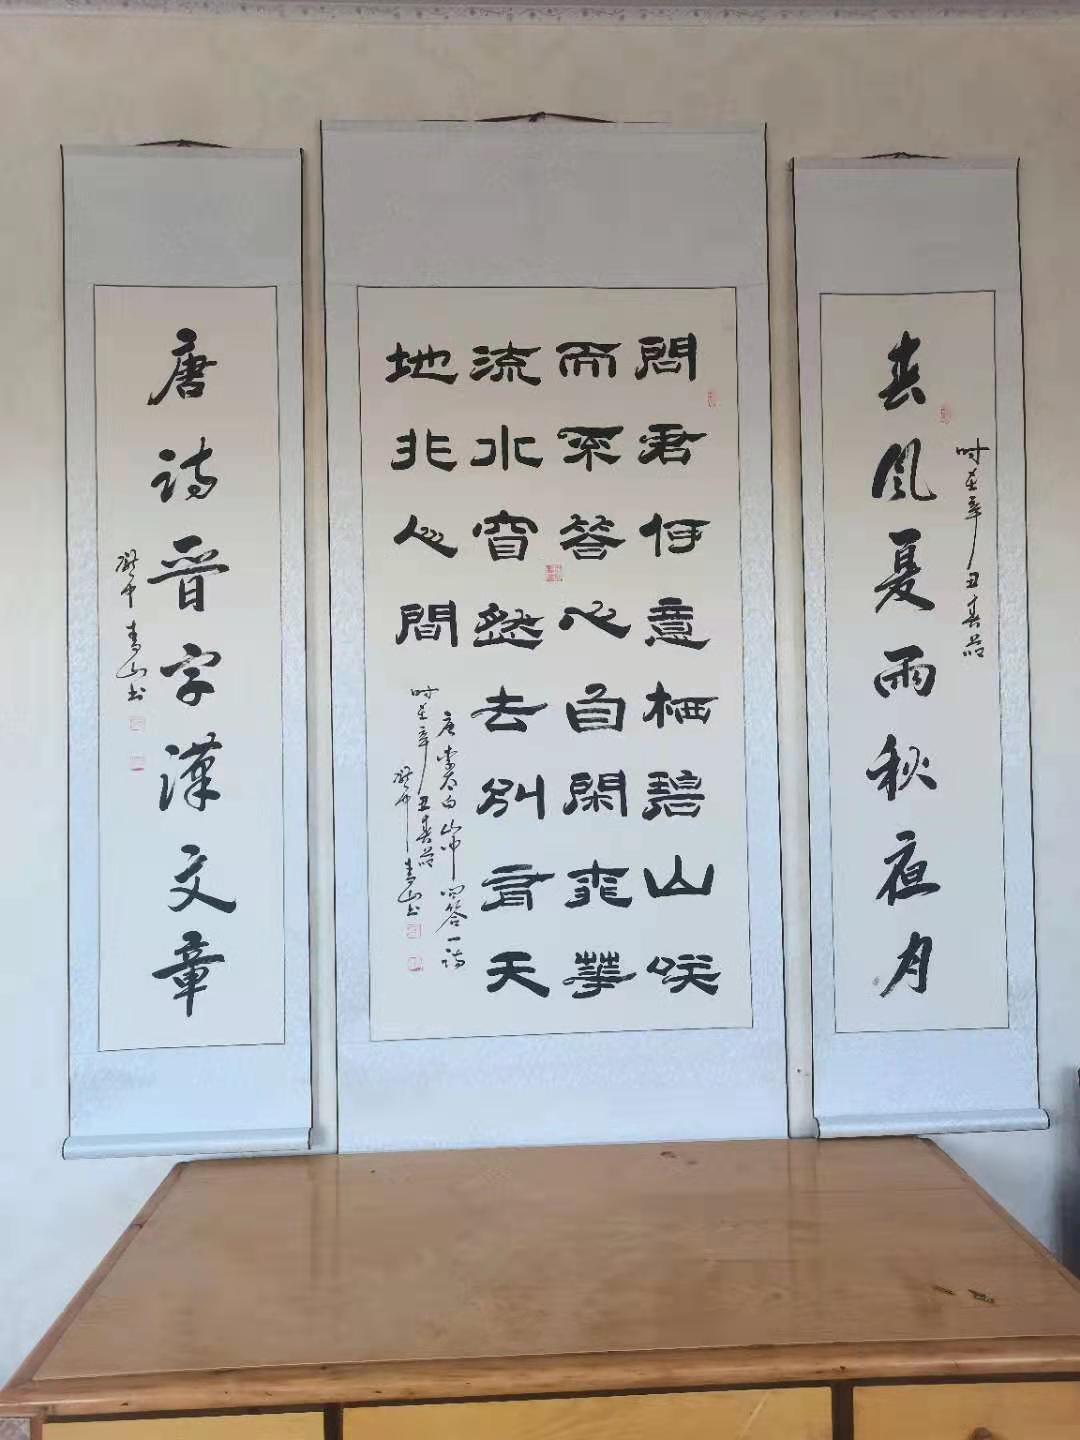 春風夏雨秋夜月
时在辛丑春节
問君何意栖碧山咲
而不答心自閑桃華
流水窅然去別有天
地非人間
唐李太白山中问答一诗
时在辛丑春节
青山书
唐诗晋字漢文章
青山书